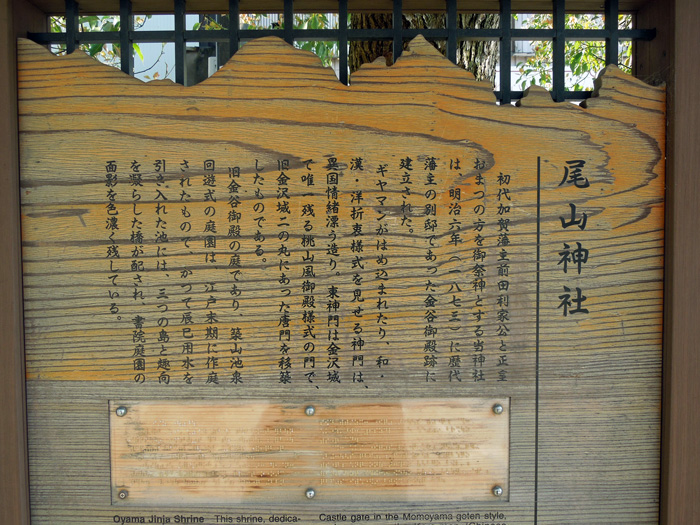 尾山神社
初代加賀藩主前田利家公と正室
おまつの方を御祭神とする当神社
は、明治六年(一八七三)に歴代
藩主の別邸であった金谷御殿跡に
建立された。
ギヤマンがはめ込まれたり、和・
漢・洋折衷様式を見せる神門は、
異国情緒漂う造り。東神門は金沢城
で唯一残る桃山風御殿様式の門で、
旧金沢城二の丸にあった唐門を移築
したものである。
旧金谷御殿の庭であり、築山池泉
回遊式の庭園は、江戸末期に作庭
されたもので、かつて辰巳用水を
引き入れた池には、三つの島と趣向
を凝らした橋が配され、書院庭園の
面影を色濃く残している。
Oyama Jinja Shrine This shrine, dedica-
Castle gate in the Momoyama goten style,